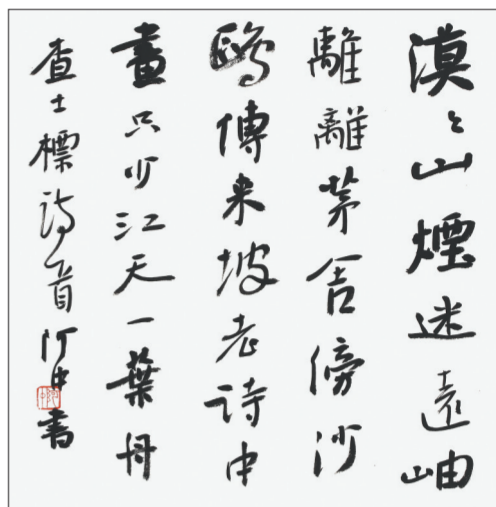 漠〻山煙迷遠岫
離離茅舍傍沙
鷗傳来坡老詩中
畫只少江天一葉舟
查士標詩一首阿中書